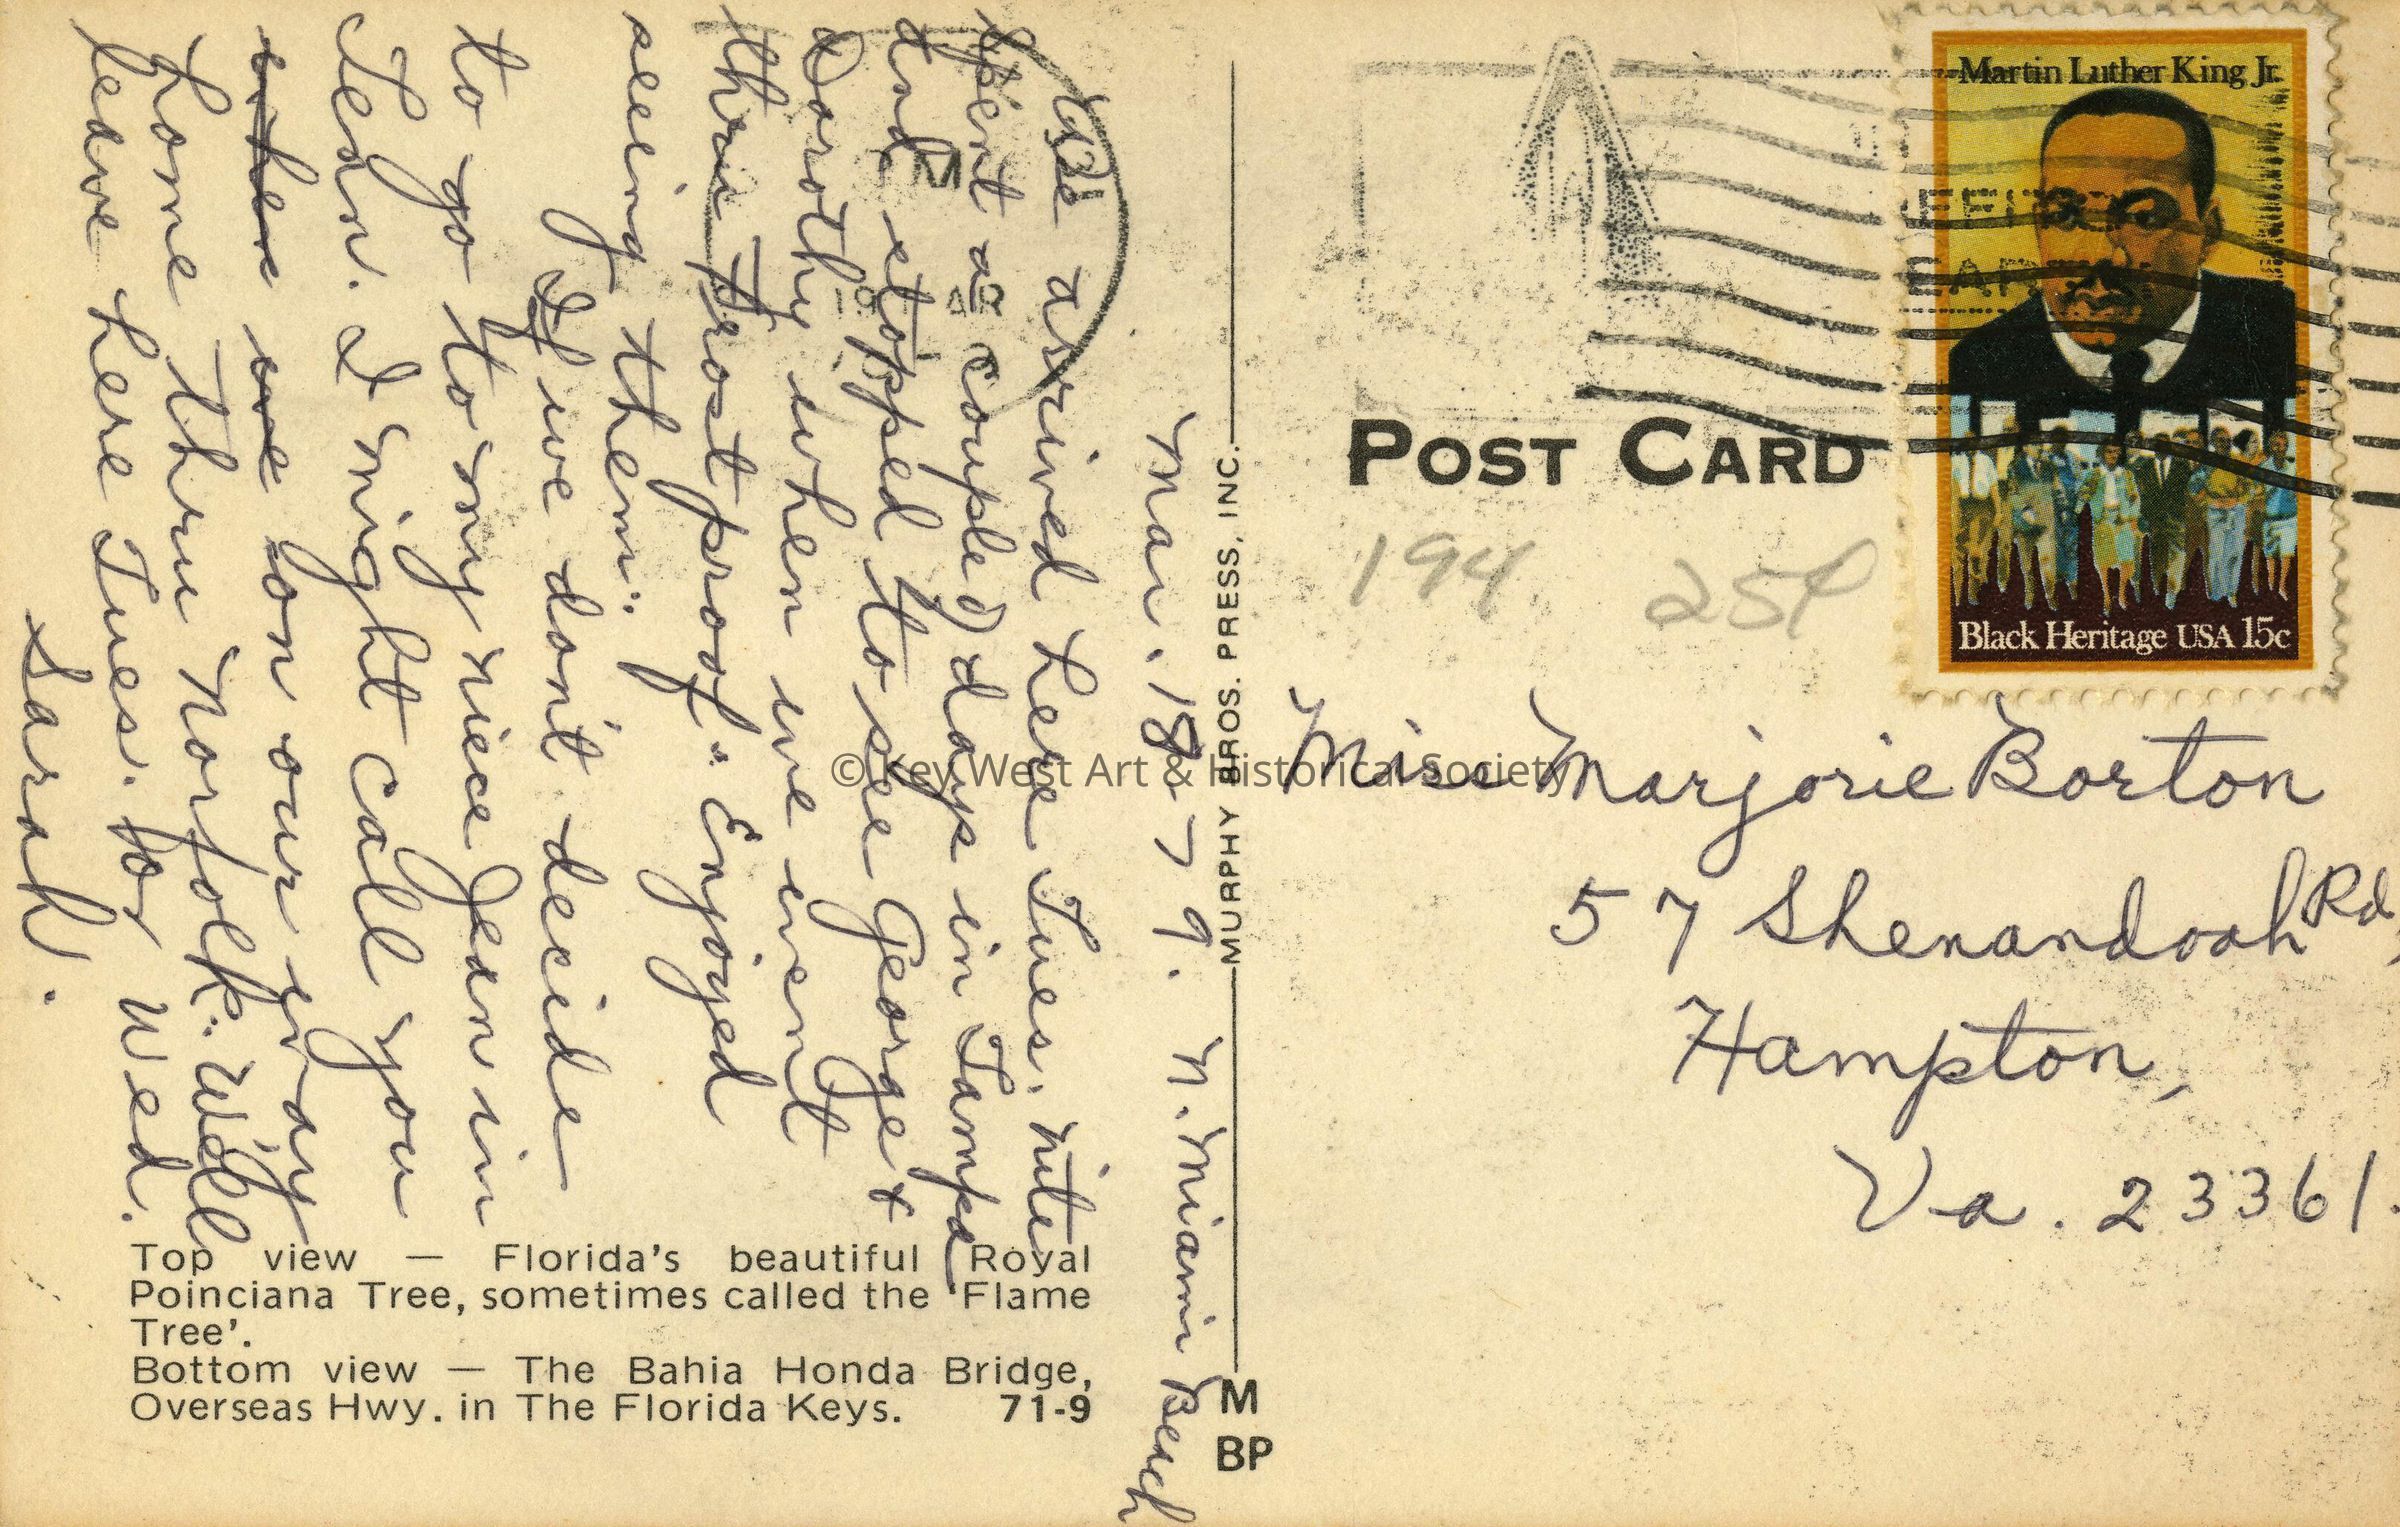 Mar. 18 - 79. N. Miami Beach
We arrived here Tues. nite
Spent a couple days in Tampa
and stopped to see George &
Dorothy when we went
thru Frostproof." Enjoyed
seeing them."
If we don't decide
to go to my niece Jean in
Tenn. I might call you
when we on our way
home thru Norfolk. We'll
leave here Tues. or Wed.
Sarah.
Top view — Florida's beautiful Royal
Poinciana Tree, sometimes called the 'Flame
Tree'.
Bottom view — The Bahia Honda Bridge,
Overseas Hwy. in The Florida Keys. 71-9
MURPHY BROS. PRESS, INC.
M
BP
POST CARD
194 25¢
Martin Luther King Jr.
Black Heritage USA 15c
Miss Marjorie Borton
57 Shenandoah Rd,
Hampton,
Va. 23361.
© Key West Art & Historical Society